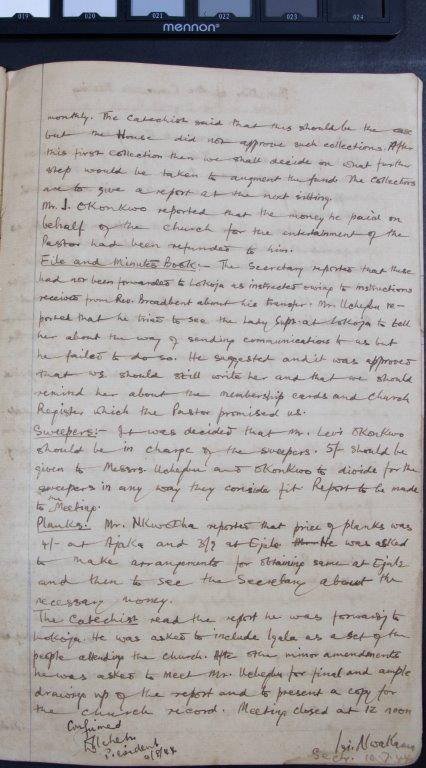 019 020 021 022 023 024
mennon
monthly. The Catechist said that this should be the case
but the House did not approve such collections. After
this first collection then we shall decide on what further
step would be taken to augment the fund. The collectors
are to give a report at the next sitting.
Mr. J. Okonkwo reported that the money he paid on
behalf of the Church for the entertainment of the
Pastor had been refunded to him.
File and Minutes Book:- The Secretary reported that these
had not been forwarded to Lokoja as instructed owing to instructions
received from Rev. Broadbent about his transfer. Mr. Uchegbu re-
ported that he tried to see the Lady Supt. at Lokoja to tell
her about the way of sending communications to us but
he failed to do so. He suggested and it was approved
that we should still write her and that we should
remind her about the membership cards and Church
Register which the Pastor promised us.
Sweepers:- It was decided that Mr. Levi Okonkwo
should be in charge of the sweepers. 5/- should be
given to Messrs Uchegbu and Okonkwo to divide for the
sweepers in any way they consider fit. Report to be made
to the Meeting.
Planks. Mr. Nkwocha reported that price of planks was
4/- at Ajaka and 3/9 at Ejule. He was asked
to make arrangements for obtaining same at Ejule
and then to see the Secretary about the
necessary money.
The Catechist read the report he was forwarding to
Lokoja. He was asked to include Igala as a sect of the
people attending the Church. After other minor amendments
he was asked to meet Mr. Uchegbu for final and ample
drawing up of the report and to present a copy for
the church record. Meeting closed at 12 noon
Confirmed
President
Secty.